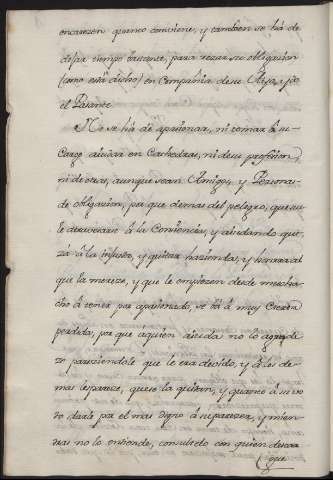 encarezen quanto conviene, y tambien se há de
dejar tiempo bastante, para rezar su obligasion
(como está dicho) en Compañia de su Ayo, y de
el Pasante
No se há de apasionar, ni tomar á su
cargo aiudar en Cathedras, ni de su profesion,
ni de otras, aunque sean Amigos, y Personas
de obligasion, por que demas del peligro, que su
le de ser en á la Conciencia, y aiudando qui
zá á la injusto, y quitar hazienda, y honra al
que la mereze, y que le empiezen desde mucha
cho á tener por apasionado, se vá á muy Cierta
perdida, por que aquien aiuda no lo agrade
ze pareziendole que le era devido, y á los de
mas les pareze, que se la quitan, y quanto á su vo
to darle por el mas digno á su parezer, y mien
tras no lo entiende, consultelo con quien desea
que